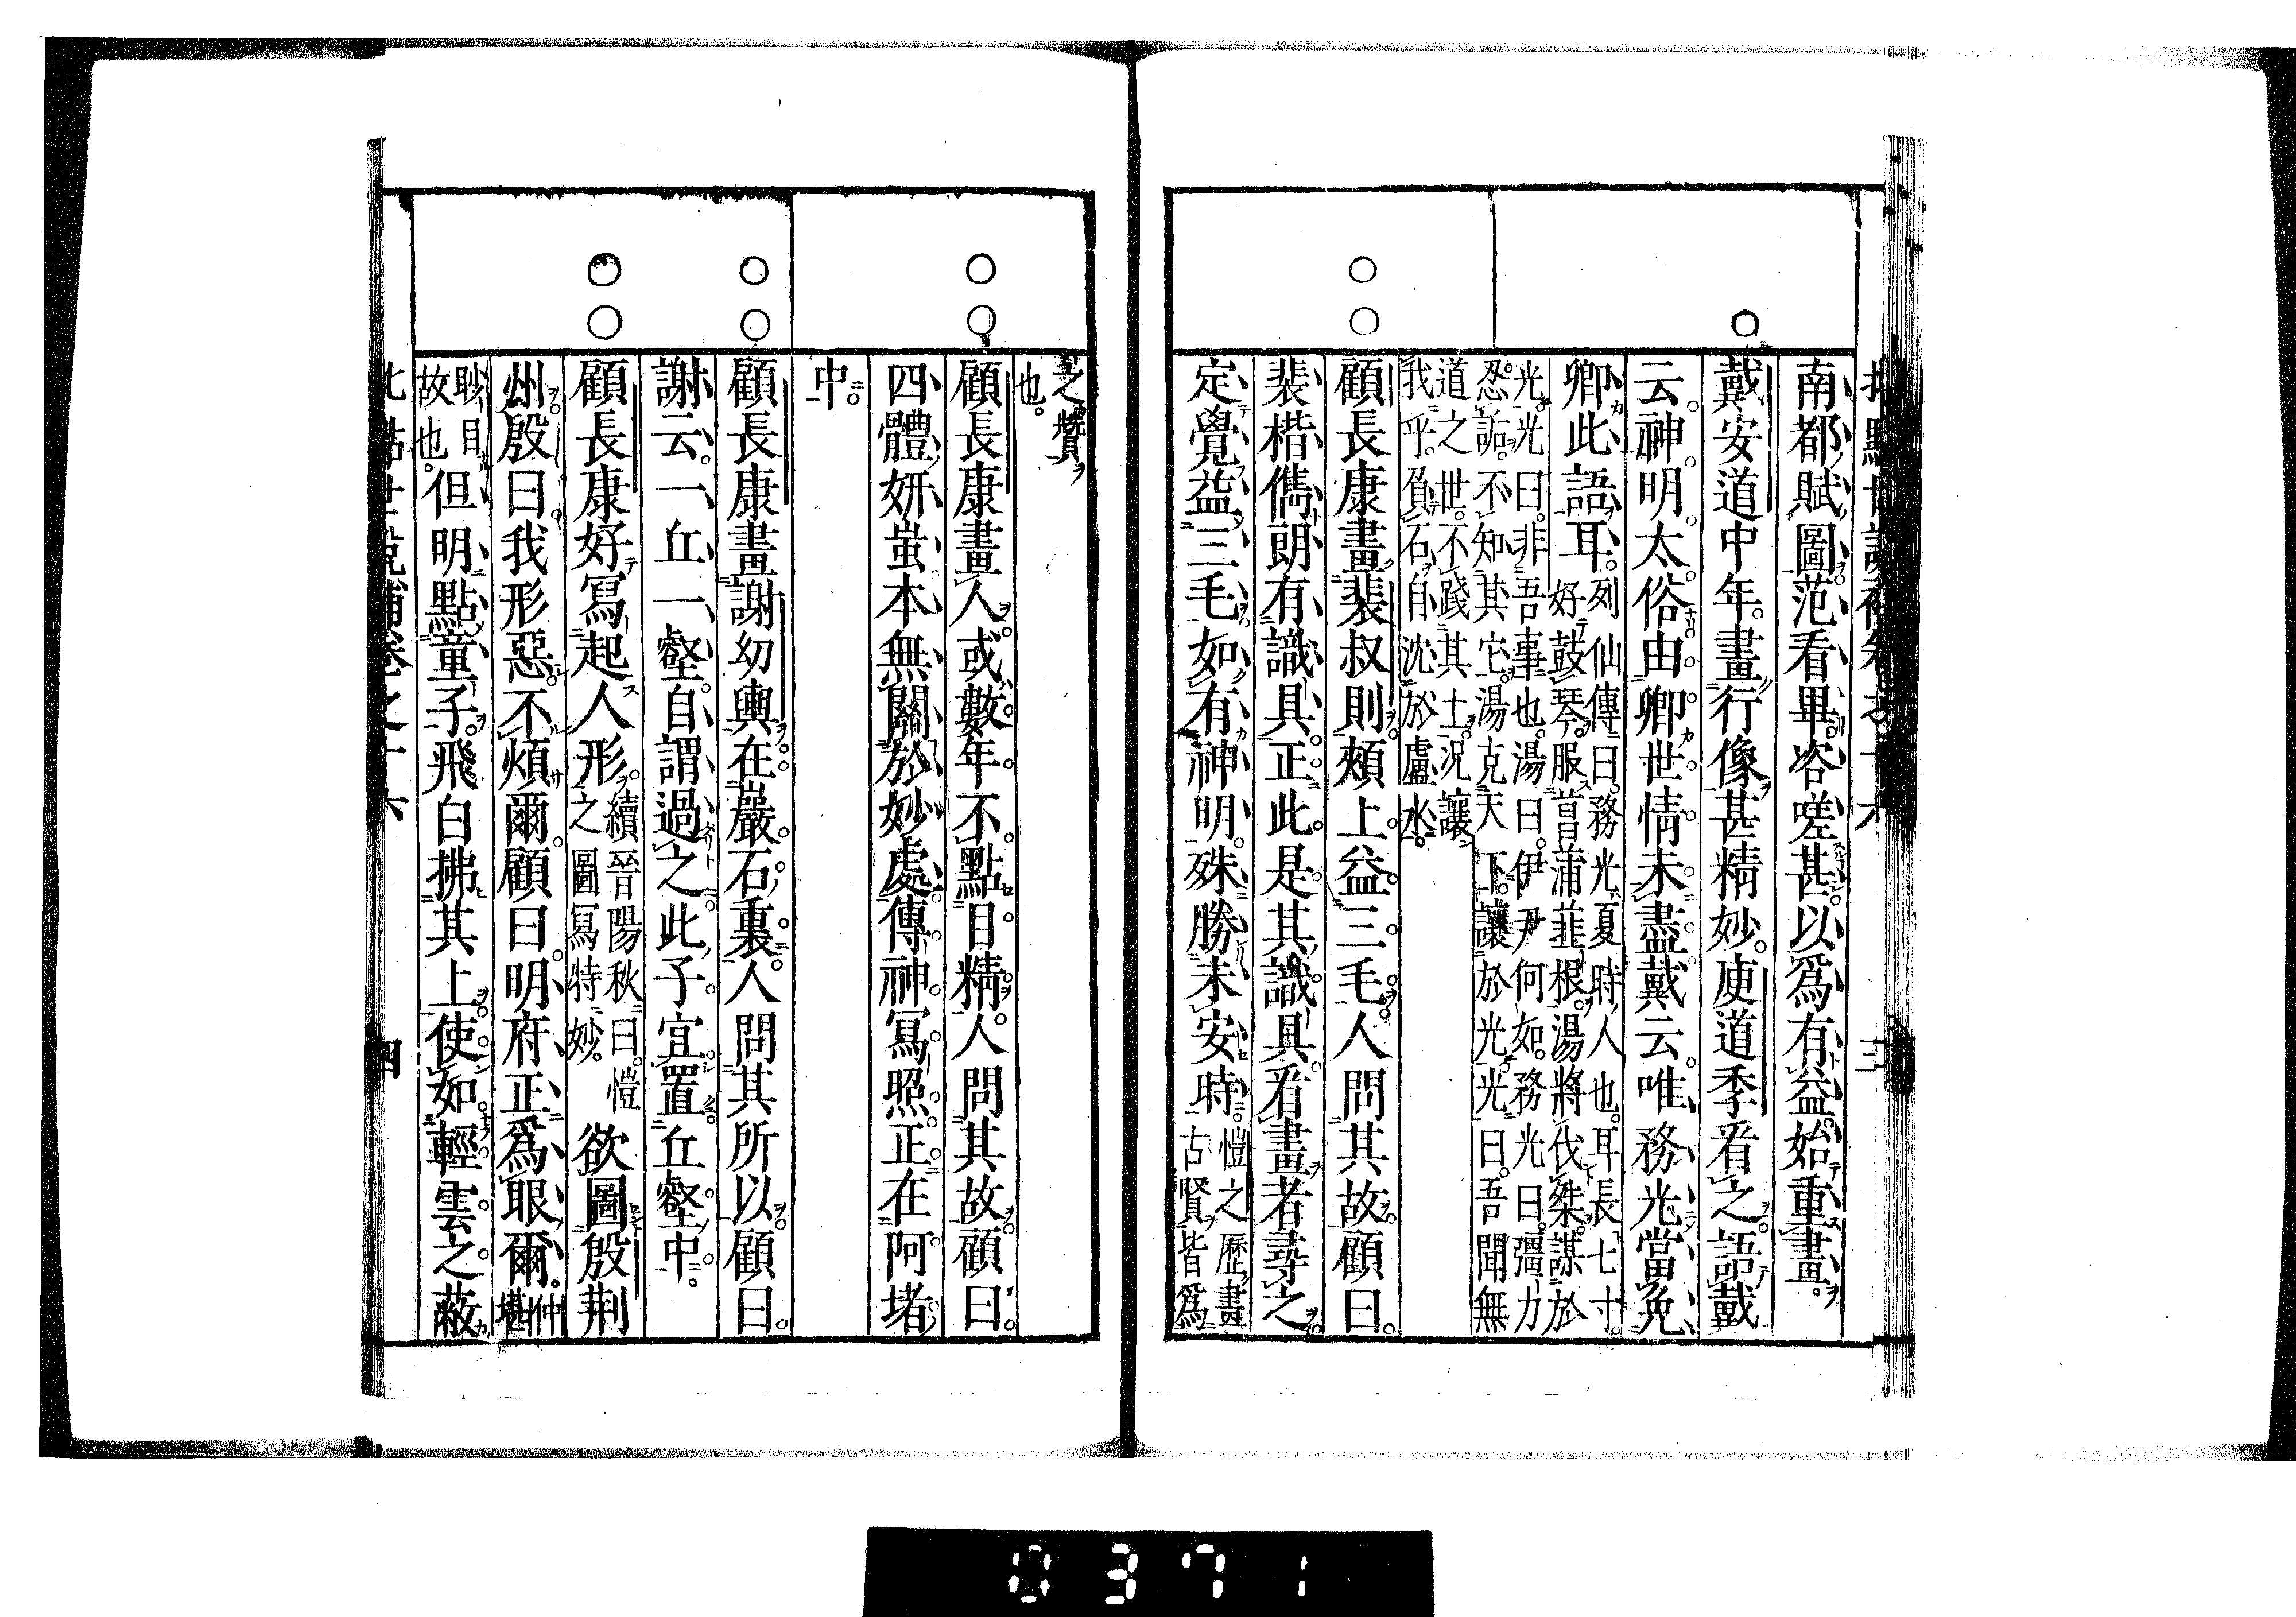 南都賦圖范看畢咨嗟甚以爲有益始重畫
戴安道中年畫行像甚精妙庾道季看之語戴
云神明太俗由卿世情未盡戴云唯務光當免
卿此語耳
列仙傳曰務光夏時人也耳長七寸
好鼓琴服菖蒲韮根湯將伐桀謀於
光光曰非吾事也湯曰伊尹何如務光曰彊力
忍詬不知其它湯克天下讓於光光曰吾聞無
道之世不踐其土況讓
我乎負石自沈於盧水
顧長康畫裴叔則頰上益三毛人問其故顧曰
裴楷儁朗有識具正此是其識具看畫者尋之
定覺益三毛如有神明殊勝未安時
愷之歷畫
古賢皆爲
之贊
也
顧長康畫人或數年不點目精人問其故顧曰
四體妍蚩本無關於妙處傳神寫照正在阿堵
中
顧長康畫謝幼輿在巖石裏人問其所以顧曰
謝云一丘一壑自謂過之此子宜置丘壑中
顧長康好寫起人形
續晉陽秋曰愷
之圖寫特妙
欲圖殷荆
州殷曰我形惡不煩爾顧曰明府正爲眼爾
仲堪
眇目
故也
但明點童子飛白拂其上使如輕雲之蔽
世說補卷之十六
四
0371